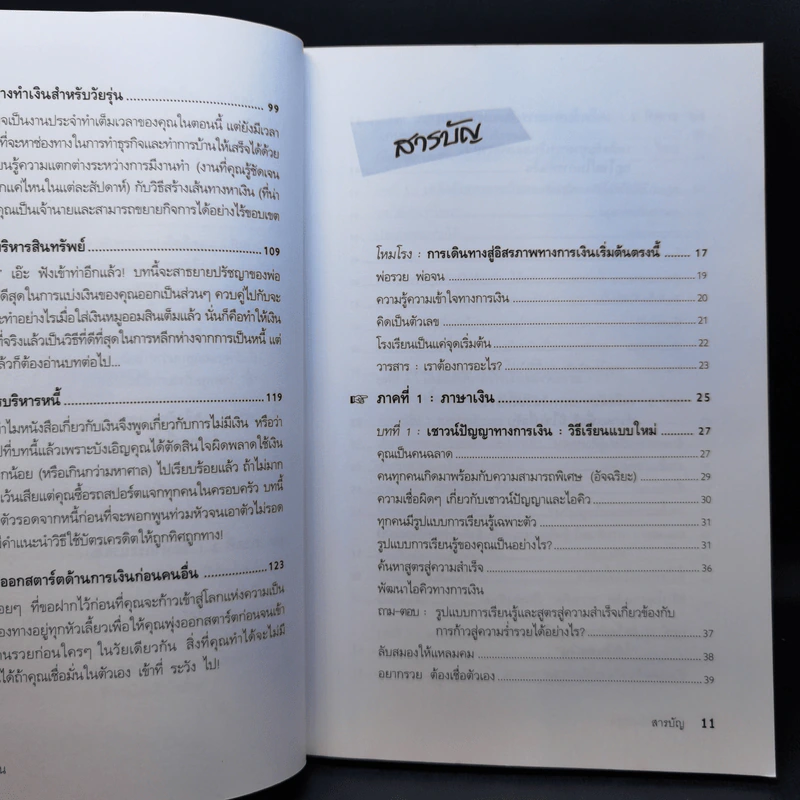 างทำเงินสำหรับวัยรุ่น ........ 99
จเป็นงานประจำทำเต็มเวลาของคุณในตอนนี้ แต่ยังมีเวลา
ที่จะหาช่องทางในการทำธุรกิจและทำการบ้านให้เสร็จได้ด้วย
ยนรู้ความแตกต่างระหว่างการมีงานทำ (งานที่คุณรู้ชัดเจน
กแค่ไหนในแต่ละสัปดาห์) กับวิธีสร้างเส้นทางหาเงิน (ที่น่า
คุณเป็นเจ้านายและสามารถขยายกิจการได้อย่างไร้ขอบเขต
ริหารสินทรัพย์ ........ 109
เอ๊ะ ฟังเข้าท่าอีกแล้ว! บทนี้จะสาธยายปรัชญาของพ่อ
ดีสุดในการแบ่งเงินของคุณออกเป็นส่วนๆ ควบคู่ไปกับจะ
ะทำอย่างไรเมื่อใส่เงินหมูออมสินเต็มแล้ว นั่นก็คือทำให้เงิน
ที่จริงแล้วเป็นวิธีที่ดีที่สุดในการหลีกห่างจากการเป็นหนี้ แต่
ล้วก็ต้องอ่านบทต่อไป...
รบริหารหนี้ ........ 119
ำไมหนังสือเกี่ยวกับเงินจึงพูดเกี่ยวกับการไม่มีเงิน หรือว่า
ปที่บทนี้แล้วเพราะบังเอิญคุณได้ตัดสินใจผิดพลาดใช้เงิน
กน้อย (หรือเกินกว่ามหาศาล) ไปเรียบร้อยแล้ว ถ้าไม่มาก
เว้นเสียแต่คุณซื้อรถสปอร์ตแจกทุกคนในครอบครัว บทนี้
ตัวรอดจากหนี้ก่อนที่จะพอกพูนท่วมหัวจนเอาตัวไม่รอด
ีคำแนะนำวิธีใช้บัตรเครดิตให้ถูกทิศถูกทาง!
ออกสตาร์ตด้านการเงินก่อนคนอื่น ........ 123
อยๆ ที่ขอฝากไว้ก่อนที่คุณจะก้าวเข้าสู่โลกแห่งความเป็น
องทางอยู่ทุกหัวเลี้ยวเพื่อให้คุณพุ่งออกสตาร์ตก่อนจนเข้า
านรวยก่อนใครๆ ในวัยเดียวกัน สิ่งที่คุณทำได้จะไม่มี
ได้ถ้าคุณเชื่อมั่นในตัวเอง เข้าที่ ระวัง ไป!
น
สารบัญ
โหมโรง : การเดินทางสู่อิสรภาพทางการเงินเริ่มต้นตรงนี้ ........ 17
พ่อรวย พ่อจน ........ 19
ความรู้ความเข้าใจทางการเงิน ........ 20
คิดเป็นตัวเลข ........ 21
โรงเรียนเป็นแค่จุดเริ่มต้น ........ 22
วารสาร : เราต้องการอะไร? ........ 23
☞ ภาคที่ 1 : ภาษาเงิน ........ 25
บทที่ 1 : เชาวน์ปัญญาทางการเงิน : วิธีเรียนแบบใหม่ ........ 27
คุณเป็นคนฉลาด ........ 27
คนทุกคนเกิดมาพร้อมกับความสามารถพิเศษ (อัจฉริยะ) ........ 29
ความเชื่อผิดๆ เกี่ยวกับเชาวน์ปัญญาและไอคิว ........ 30
ทุกคนมีรูปแบบการเรียนรู้เฉพาะตัว ........ 31
รูปแบบการเรียนรู้ของคุณเป็นอย่างไร? ........ 31
ค้นหาสูตรสู่ความสำเร็จ ........ 36
พัฒนาไอคิวทางการเงิน
ถาม-ตอบ : รูปแบบการเรียนรู้และสูตรสู่ความสำเร็จเกี่ยวข้องกับ
การก้าวสู่ความร่ำรวยได้อย่างไร? ........ 37
ลับสมองให้แหลมคม ........ 38
อยากรวย ต้องเชื่อตัวเอง ........ 39
สารบัญ 11